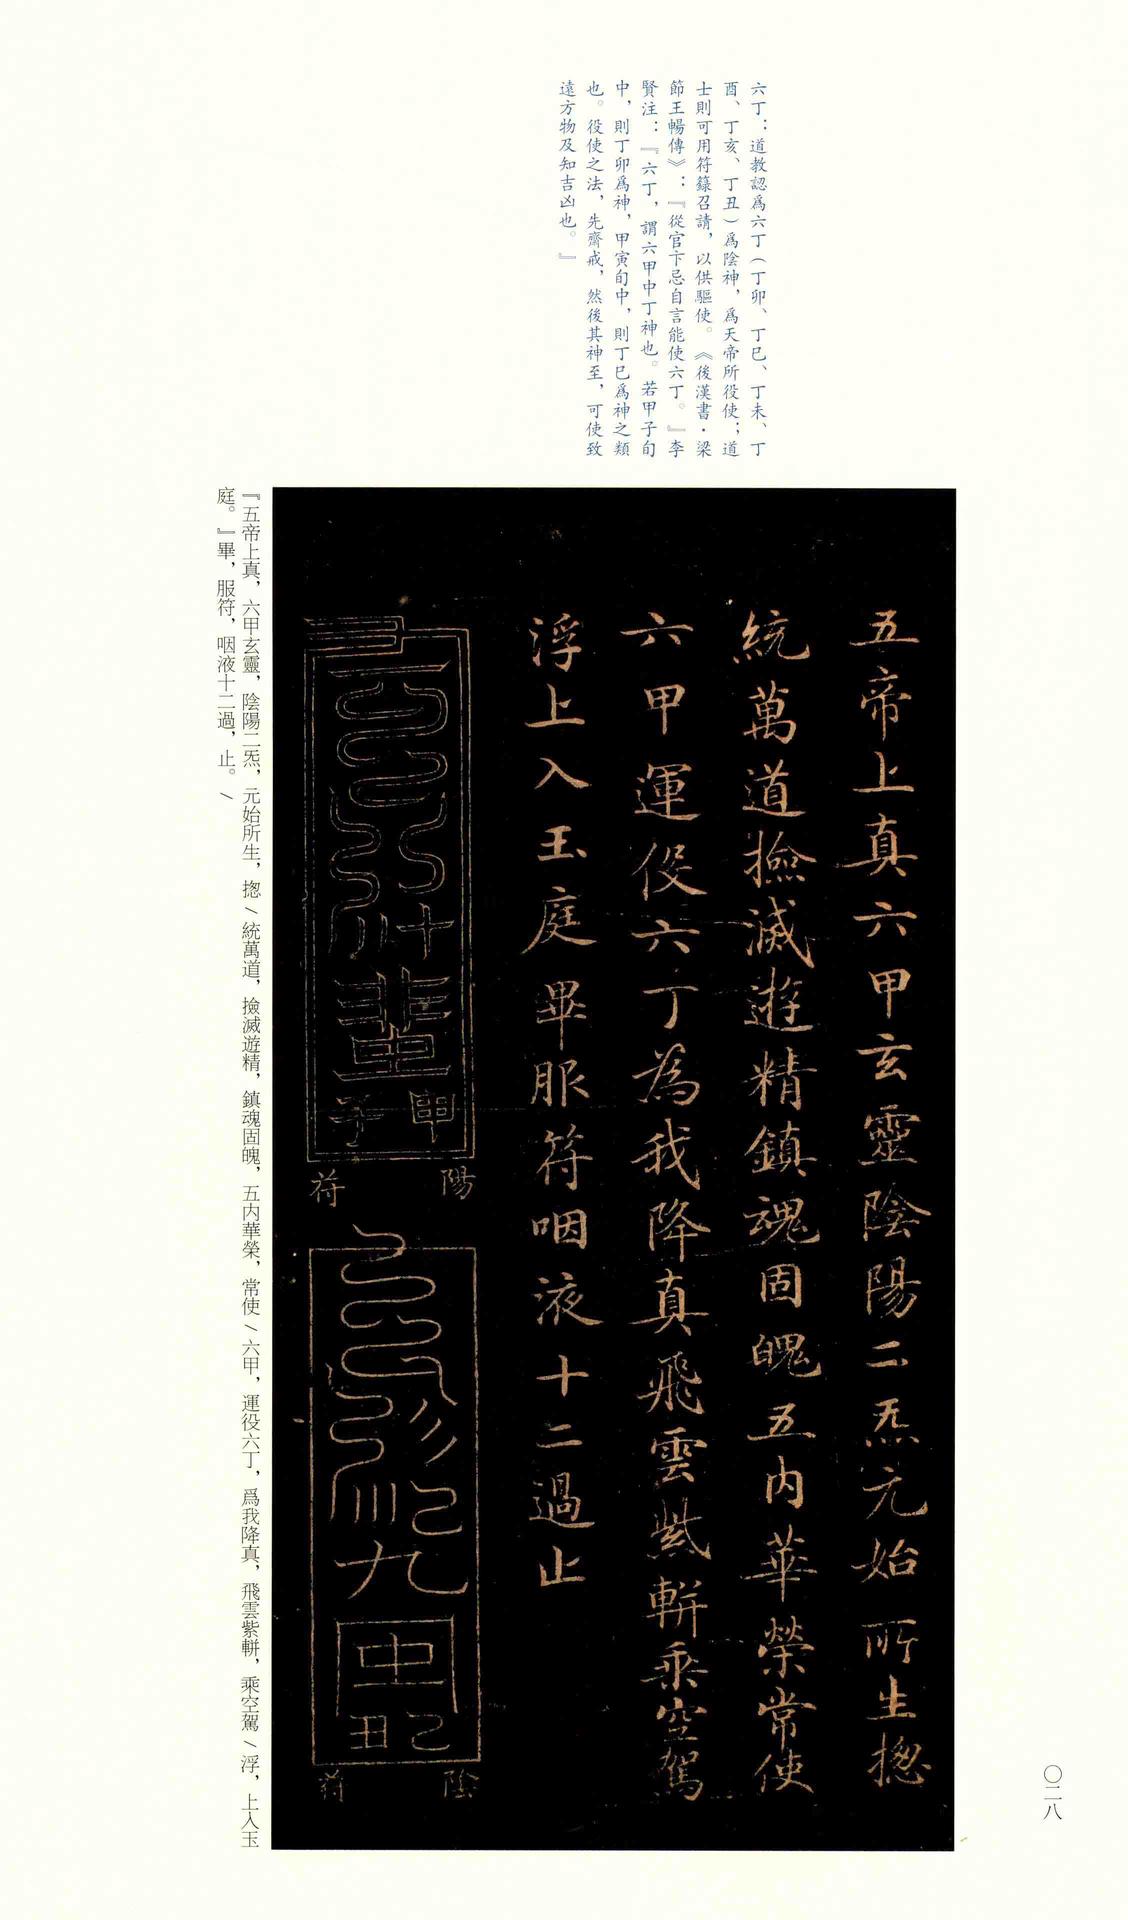 六丁：道教認爲六丁（丁卯、丁巳、丁未、丁
酉、丁亥、丁丑）爲陰神，爲天帝所役使；道
士則可用符籙召請，以供驅使。《後漢書·梁
節王暢傳》：『從官卞忌自言能使六丁。』李
賢注：『六丁，謂六甲中丁神也。若甲子旬
中，則丁卯爲神，甲寅旬中，則丁巳爲神之類
也。役使之法，先齋戒，然後其神至，可使致
遠方物及知吉凶也。』
五帝上真六甲玄靈陰陽二炁元始所生揔
統萬道撿滅遊精鎮魂固魄五内華榮常使
六甲運役六丁為我降真飛雲紫軿乘空駕
浮上入玉庭畢服符咽液十二過止
甲子
陽符
己丑
陰符
『五帝上真，六甲玄靈，陰陽二炁，元始所生，揔\統萬道，撿滅遊精，鎮魂固魄，五内華榮，常使\六甲，運役六丁，爲我降真，飛雲紫軿，乘空駕\浮，上入玉
庭。』畢，服符，咽液十二過，止。\
〇二八